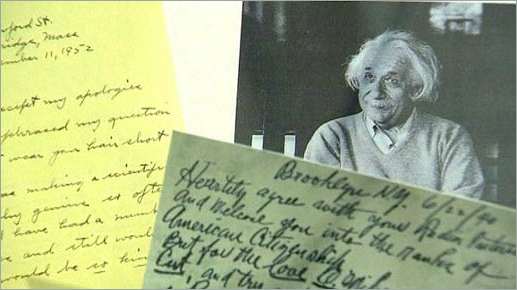 ford St.
ridge, Mass
ember 11, 1952
ccept my apologies
phrased my question
wear your hair short
as making a scientific
why genius so often
have had a num
e and still would
would be so kin
Brooklyn N.Y. 6/22/40
Heartily agree with your Radio
And welcome you into the Ranks of
American Citizenship
But for the Love
Cut, and